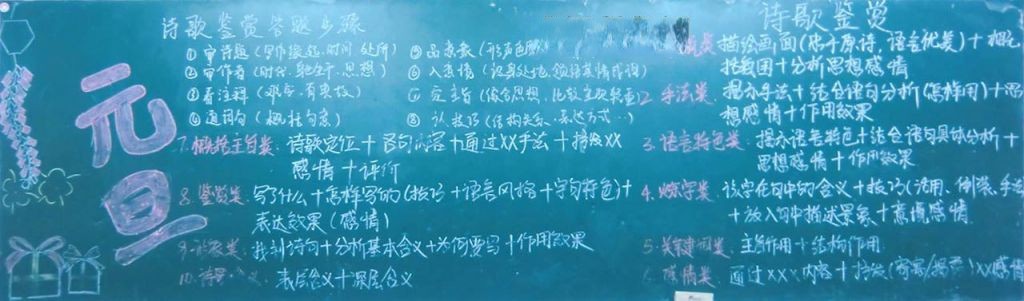 元旦
诗歌鉴赏答题步骤
① 审诗题(写作缘起.时间.处所)
② 审作者(时代.生平.思想)
③ 看注释(难点.有典故)
④ 通词句(概括句意)
⑤ 品意象(形声色
⑥ 入意情(设身处地.领悟意情感调)
主旨(
⑧ 认技巧(结构关系.表达方式…)
7. 概括主旨类: 诗歌定位+语句内容+通过XX手法+抒发XX
感情+评价
8. 鉴赏类: 写了什么+怎样写的(技巧+语言风格+字句特色)+
表达效果(感情)
类: 找到诗句+分析基本含义+为何要写+作用效果
10. 表层含义+深层含义
诗歌鉴赏
描绘画面(忠于原诗,语言优美)+概
括氛围+分析思想感情
2. 手法类: 揭示手法+结合语句分析(怎样用)+思
想感情+作用效果
3. 语言特色类: 揭示语言特色+结合语句具体分析+
思想感情+作用效果
4. 炼字类: 该字在句中的含义+技巧(活用、倒装、手法
+放入句中描述景象+意情,感情
5. 关键词类: 主旨作用+结构作用
6. 感情类: 通过XXX内容+抒发(寄寓/揭露)XX感情